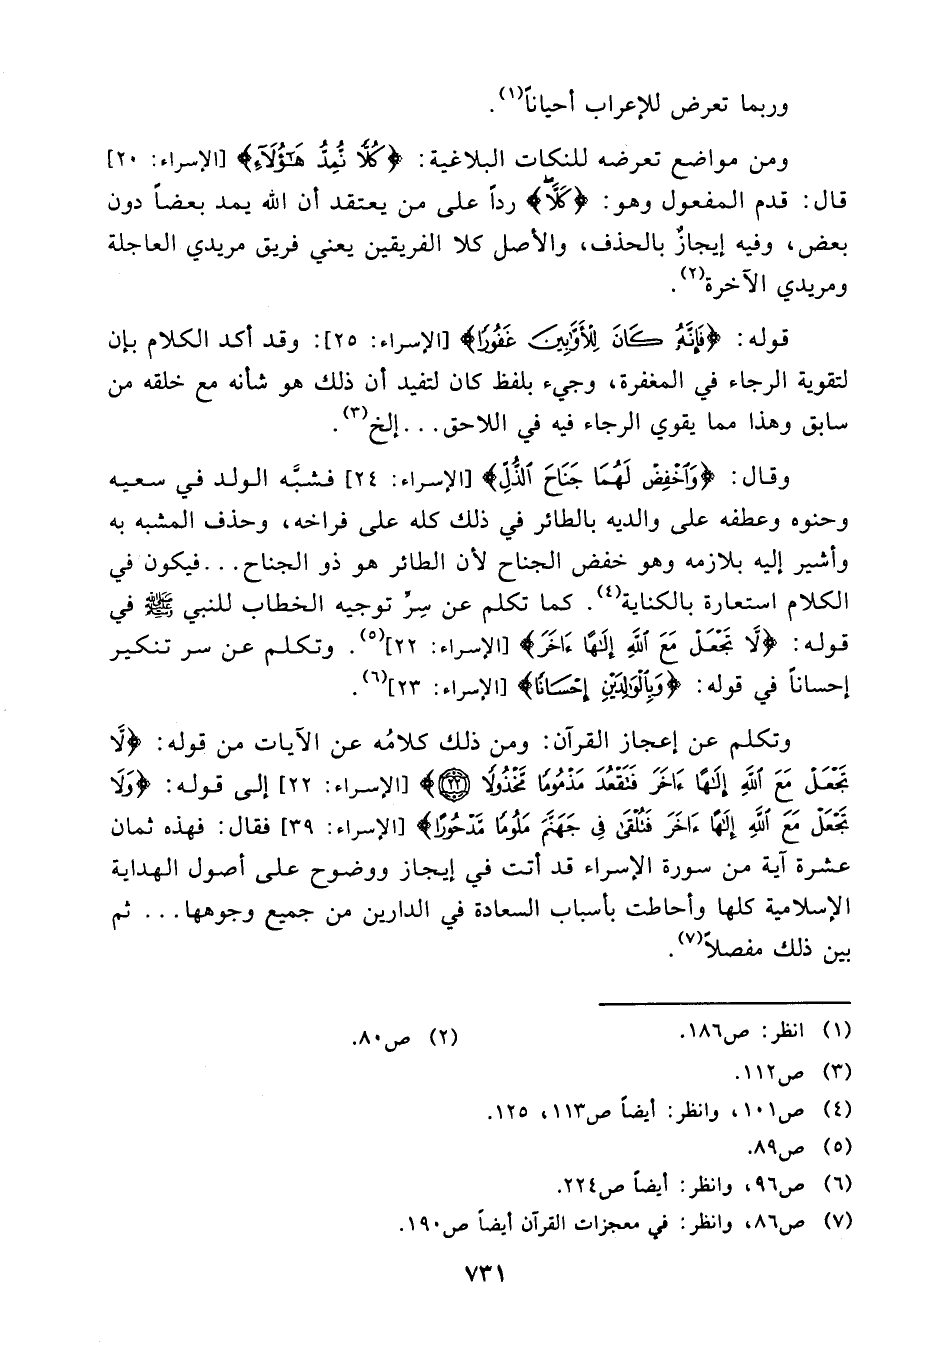 وربما تعرض للإعراب أحياناً(١).
ومن مواضع تعرضه للنكات البلاغية: ﴿كُلًّا نُّمِدُّ هَٰٓؤُلَآءِ﴾ [الإسراء: ٢٠]
قال: قدم المفعول وهو: ﴿كُلًّا﴾ رداً على من يعتقد أن الله يمد بعضاً دون
بعض، وفيه إيجازٌ بالحذف، والأصل كلا الفريقين يعني فريق مريدي العاجلة
ومريدي الآخرة(٢).
قوله: ﴿فَإِنَّهُۥ كَانَ لِلْأَوَّٰبِينَ غَفُورًا﴾ [الإسراء: ٢٥]: وقد أكد الكلام بإن
لتقوية الرجاء في المغفرة، وجيء بلفظ كان لتفيد أن ذلك هو شأنه مع خلقه من
سابق وهذا مما يقوي الرجاء فيه في اللاحق...إلخ(٣).
وقال: ﴿وَٱخْفِضْ لَهُمَا جَنَاحَ ٱلذُّلِّ﴾ [الإسراء: ٢٤] فشبَّه الولد في سعيه
وحنوه وعطفه على والديه بالطائر في ذلك كله على فراخه، وحذف المشبه به
وأشير إليه بلازمه وهو خفض الجناح لأن الطائر هو ذو الجناح...فيكون في
الكلام استعارة بالكناية(٤). كما تكلم عن سِرِّ توجيه الخطاب للنبي ﷺ في
قوله: ﴿لَّا تَجْعَلْ مَعَ ٱللَّهِ إِلَٰهًا ءَاخَرَ﴾ [الإسراء: ٢٢](٥). وتكلم عن سر تنكير
إحساناً في قوله: ﴿وَبِٱلْوَٰلِدَيْنِ إِحْسَٰنًا﴾ [الإسراء: ٢٣](٦).
وتكلم عن إعجاز القرآن: ومن ذلك كلامُه عن الآيات من قوله: ﴿لَّا
تَجْعَلْ مَعَ ٱللَّهِ إِلَٰهًا ءَاخَرَ فَتَقْعُدَ مَذْمُومًا مَّخْذُولًا ٢٢﴾ [الإسراء: ٢٢] إلى قوله: ﴿وَلَا
تَجْعَلْ مَعَ ٱللَّهِ إِلَٰهًا ءَاخَرَ فَتُلْقَىٰ فِى جَهَنَّمَ مَلُومًا مَّدْحُورًا﴾ [الإسراء: ٣٩] فقال: فهذه ثمان
عشرة آية من سورة الإسراء قد أتت في إيجاز ووضوح على أصول الهداية
الإسلامية كلها وأحاطت بأسباب السعادة في الدارين من جميع وجوهها... ثم
بين ذلك مفصلاً(٧).
(١) انظر: ص١٨٦. (٢) ص٨٠.
(٣) ص١١٢.
(٤) ص١٠١، وانظر: أيضاً ص١١٣، ١٢٥.
(٥) ص٨٩.
(٦) ص٩٦، وانظر: أيضاً ص٢٢٤.
(٧) ص٨٦، وانظر: في معجزات القرآن أيضاً ص١٩٠.
٧٣١